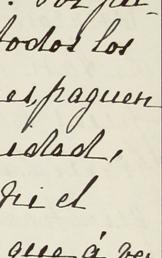 todos los
es, paguen
idad,
ni el
que á